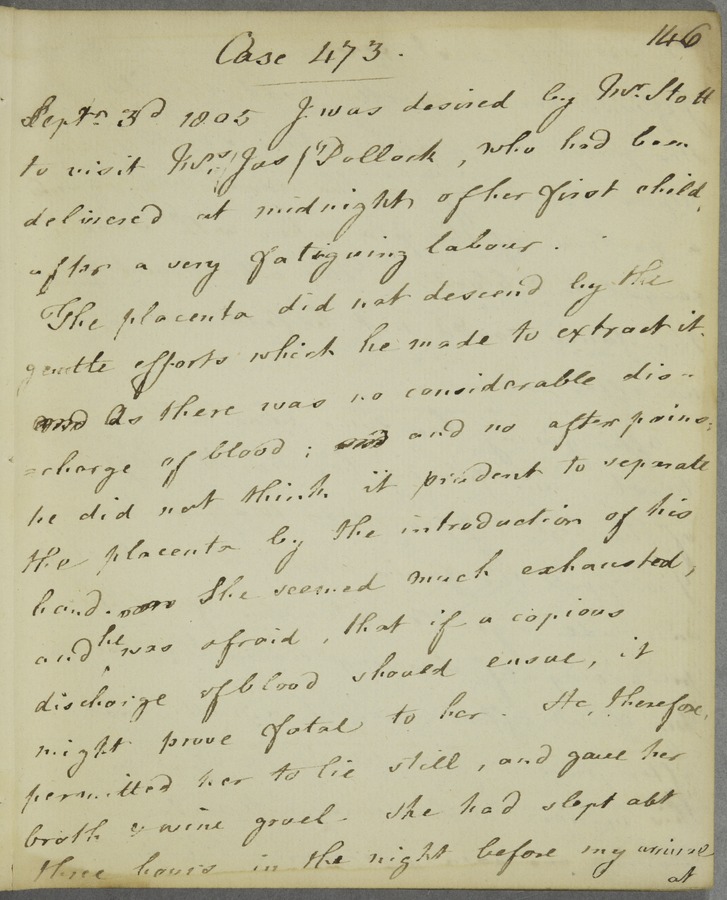 146
Case 473.
Septr. 3d 1805 I was desired by Mr. Stott
to visit Mrs. (Jas) Pollock, who had been
delivered at midnight of her first child,
after a very fatiguing labour.
The placenta did not descend by the
gentle efforts which he made to extract it.
and As there was no considerable dis-
=charge of blood; and and no after pains;
he did not think it prudent to separate
the placenta by the introduction of his
hand. She seemed much exhausted,
and he was afraid, that if a copious
discharge of blood should ensue, it
might prove fatal to her. He, therefore,
permitted her to lie still, and gave her
broth & wine gruel. She had slept abt
three hours in the night before my arrival
at